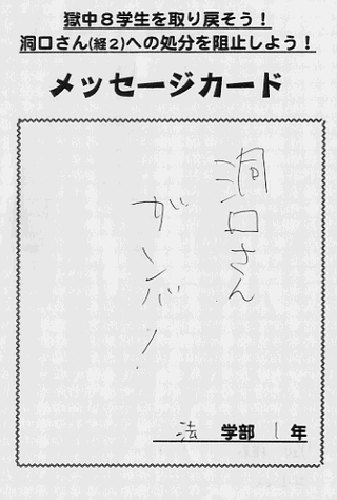 獄中8学生を取り戻そう!
洞口さん(経2)への処分を阻止しよう!
メッセージカード
洞口さん
ガンバ!
法 学部 1年